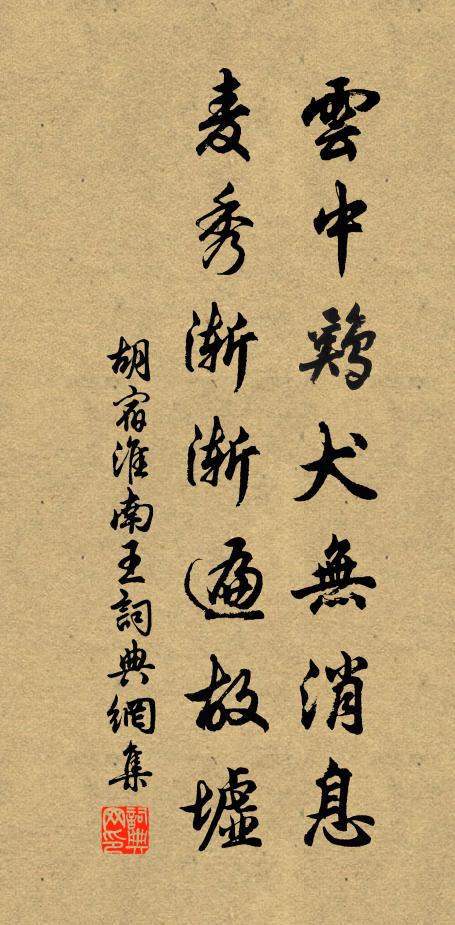 雲中鷄犬無消息
麦秀漸漸遍故墟
胡宿淮南王詞典網集
詞典网印